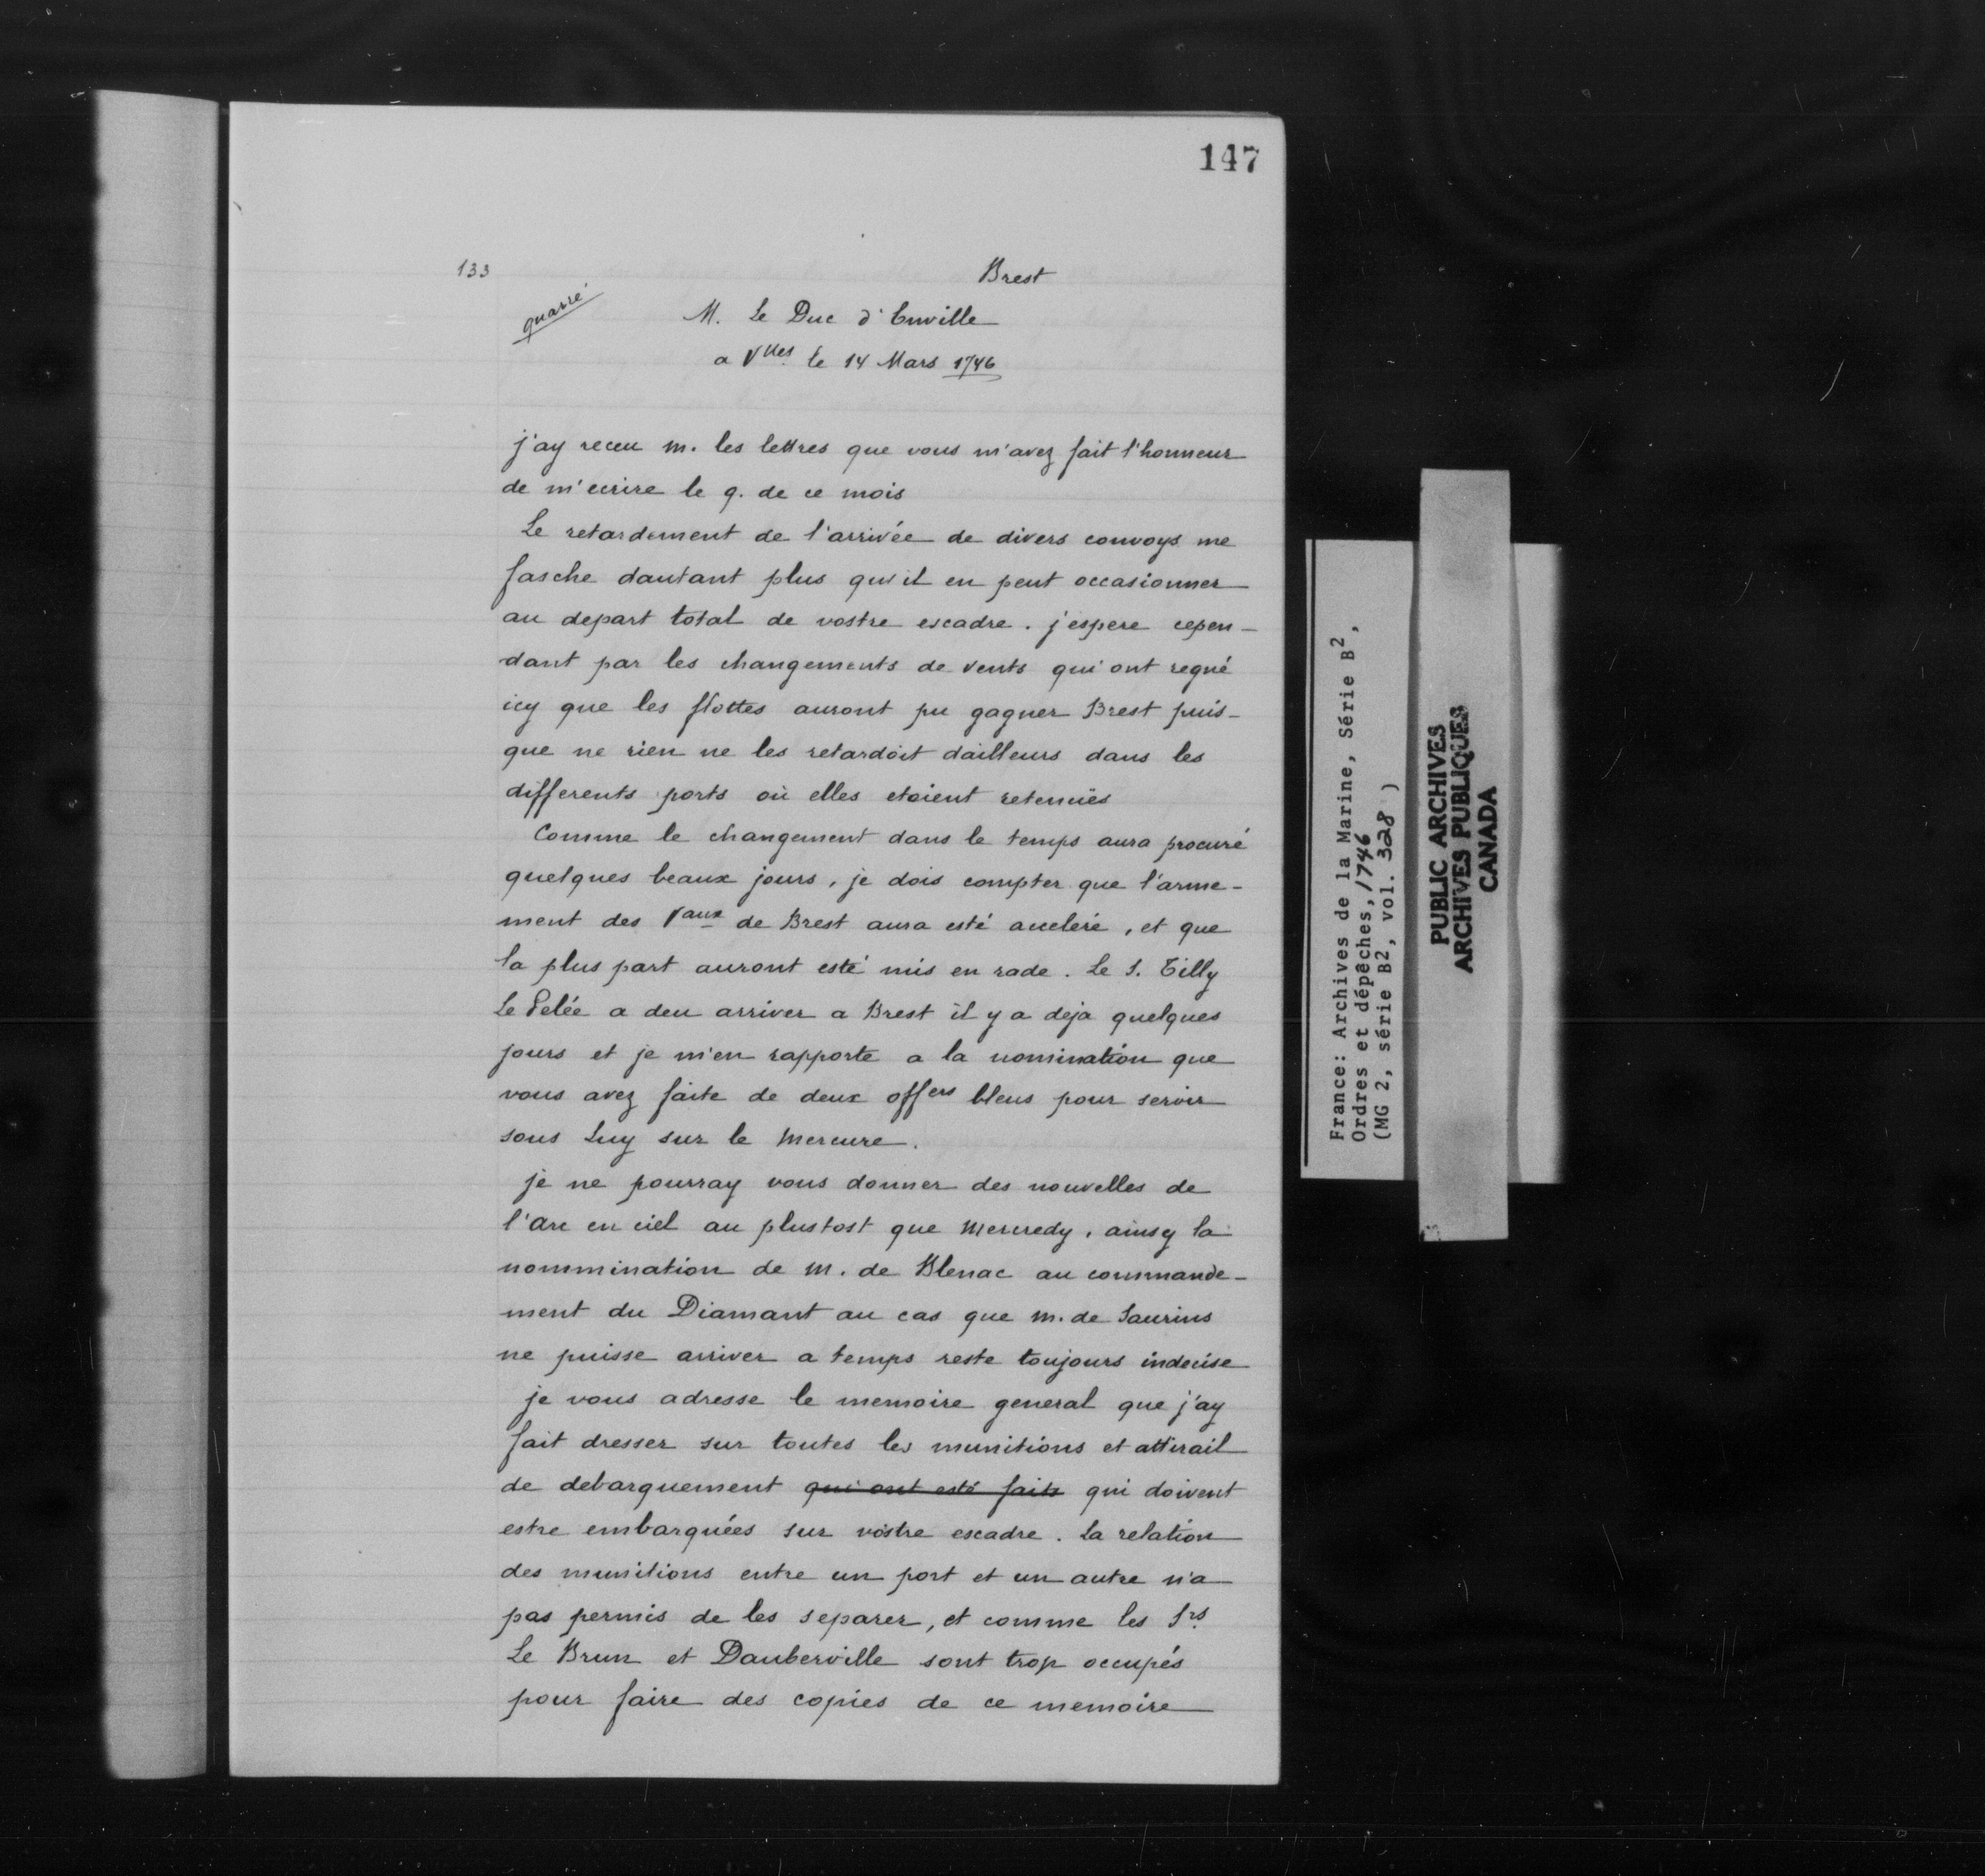 147
133
Brest
quarré
M. Le Duc d'Enville
a Vlles le 14 Mars 1746
j'ay receu m. les lettres que vous m'avez fait l'honneur
de m'ecrire le 9. de ce mois
Le retardement de l'arrivée de divers convoys me
fasche dautant plus qu'il en peut occasionner
au depart total de vostre escadre. j'espere cepen-
dant par les changements de vents qui ont regné
icy que les flottes auront pu gagner Brest puis-
que ne rien ne les retardoit dailleurs dans les
differents ports où elles etoient retenües
Comme le changement dans le temps aura procuré
quelques beaux jours, je dois compter que l'arme-
ment des Vaux de Brest aura esté acceleré, et que
la plus part auront esté mis en rade. Le S. Tilly
Le Pelée a deu arriver a Brest il y a deja quelques
jours et je m'en rapporte a la nomination que
vous avez faite de deux offers bleus pour servir
sous Luy sur le Mercure.
je ne pourray vous donner des nouvelles de
l'arc en ciel au plustost que Mercredy, ainsy la
nommination de m. de Blenac au commande-
ment du Diamant au cas que m. de Saurins
ne puisse arriver a temps reste toujours indecise
je vous adresse le memoire general que j'ay
fait dresser sur toutes les munitions et attirail
de debarquement qui ont esté faits qui doivent
estre embarquées sur vostre escadre. La relation
des munitions entre un port et un autre n'a
pas permis de les separer, et comme les Srs
Le Brun et Dauberville sont trop occupés
pour faire des copies de ce memoire
France: Archives de la Marine, Série B2,
Ordres et dépêches, 1746
(MG 2, série B2, vol. 328)
PUBLIC ARCHIVES
ARCHIVES PUBLIQUES
CANADA